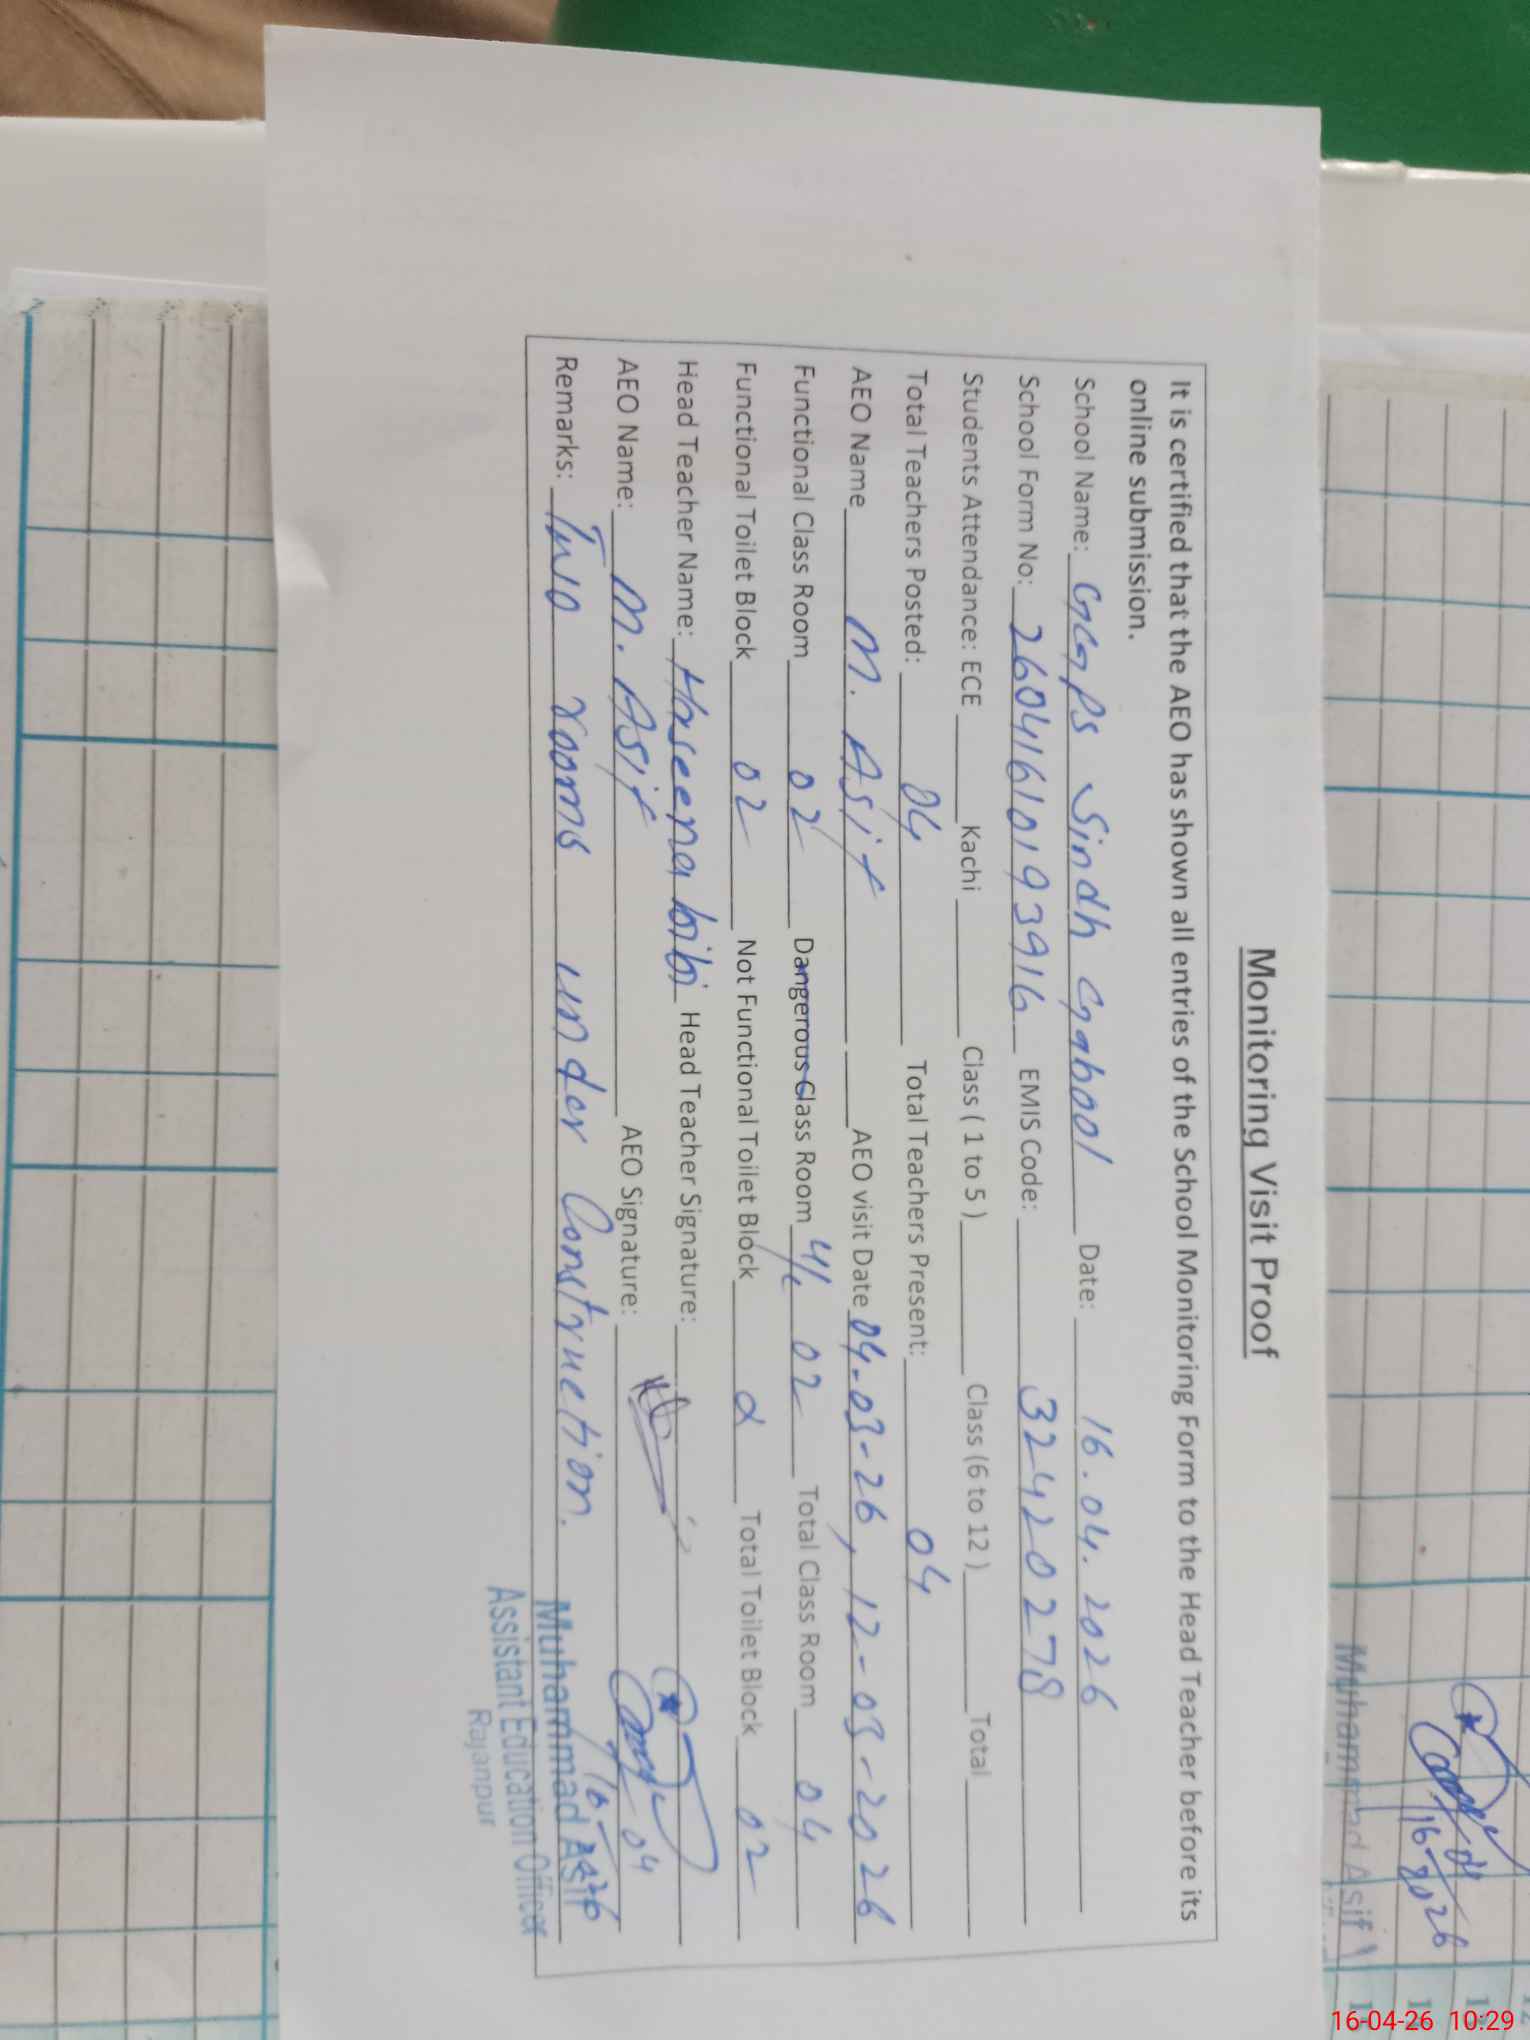 Monitoring Visit Proof
It is certified that the AEO has shown all entries of the School Monitoring Form to the Head Teacher before its
online submission.
School Name: GGPS Sindh Gabool Date: 16.04.2026
School Form No: 26041610193916 EMIS Code: 32420278
Students Attendance: ECE Kachi Class ( 1 to 5 ) Class (6 to 12 ) Total
Total Teachers Posted: 04 Total Teachers Present: 04
AEO Name M. Asif AEO visit Date 04-03-26, 12-03-2026
Functional Class Room 02 Dangerous Class Room U/C 02 Total Class Room 04
Functional Toilet Block 02 Not Functional Toilet Block Total Toilet Block 02
Head Teacher Name: Haseena bibi Head Teacher Signature:
AEO Name: M. Asif AEO Signature:
16-04
2026
Remarks: Two rooms under Construction.
Muhammad Asif
Assistant Education Officer
Rajanpur
Muhammad Asif
16-04
2026
16-04-26 10:29